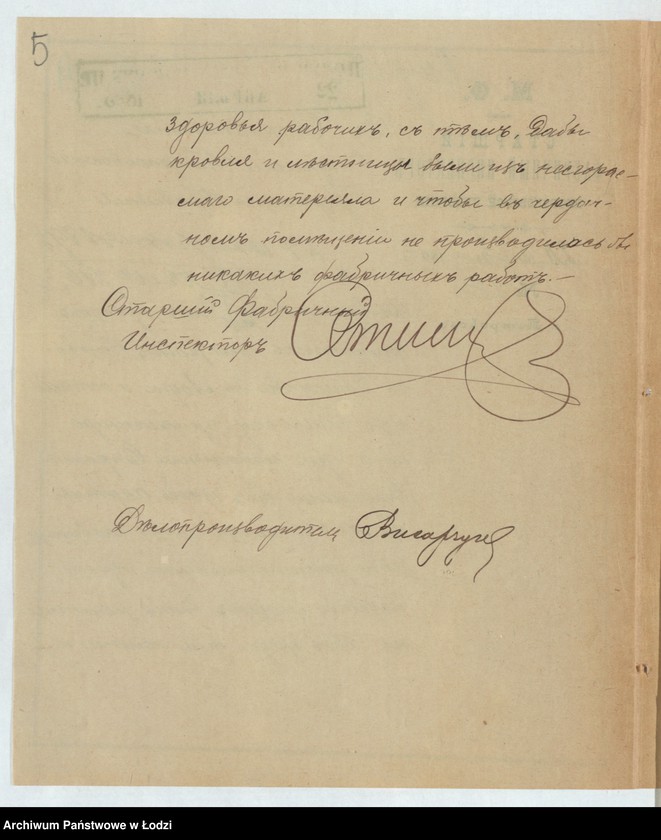 5
здоровья рабочихъ, съ тѣмъ, дабы
кровля и лѣстницы были изъ несгорае-
маго матерьяла и чтобы въ чердач-
номъ помѣщеніи не производилось бы
никакихъ фабричныхъ работъ.—
Старшій Фабричный
Инспекторъ
Дѣлопроизводитель
Archiwum Państwowe w Łodzi